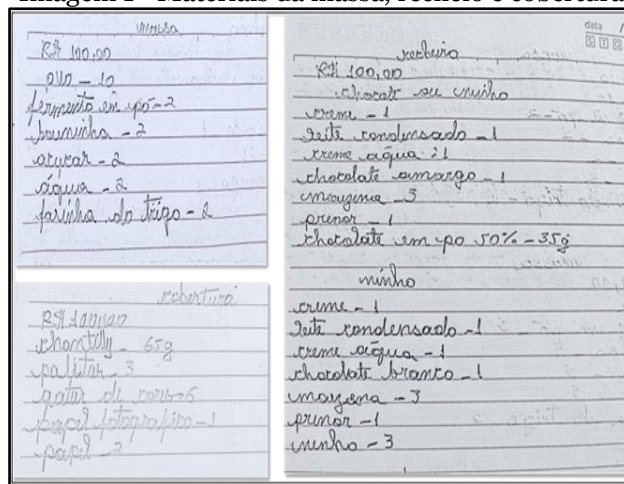 massa
R$ 100,00
ovo - 10
fermento em pó - 2
bauninha - 2
açucar - 2
água - 2
farinha do trigo - 2
cobertura
R$ 100,00
chantilly - 65g
palitos - 3
gotas de - 6
papel fotografico - 1
papel - 2
data
recheio
R$ 100,00
chocolate ou ninho
creme - 1
leite condensado - 1
creme água : 1
chocolate amargo - 1
mayzena - 3
- 1
chocolate em po 50% - 35g
ninho
creme - 1
leite condensado - 1
creme água - 1
chocolate branco - 1
mayzena - 3
- 1
ninho - 3